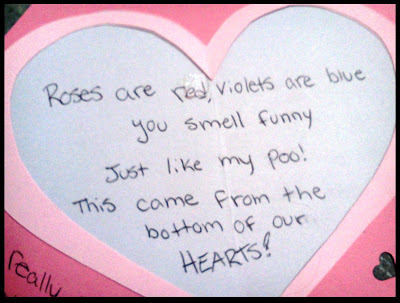 Roses are red, violets are blue
you smell funny
Just like my poo!
This came from the
bottom of our
HEARTS!
really